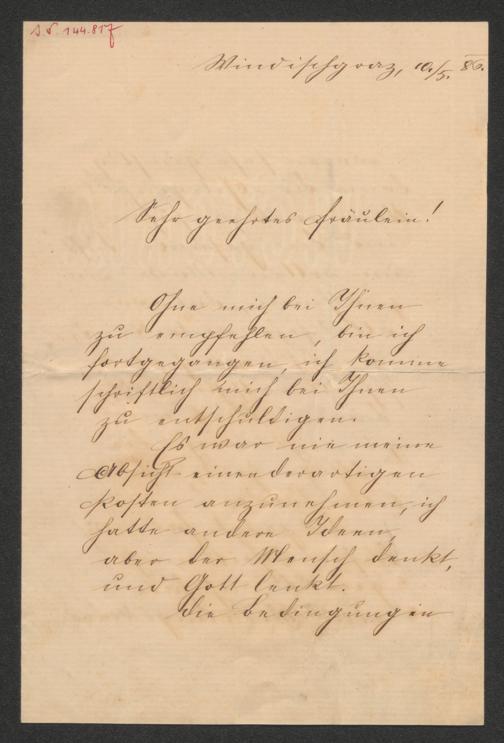 I.N. 144.817
Windischgraz, 10./5. 86.
Sehr geehrtes Fräulein!
Ohne mich bei Ihnen
zu empfehlen, bin ich
fortgegangen, ich komme
schriftlich mich bei Ihnen
zu entschuldigen.
Es war nie meine
Absicht einen derartigen
Posten anzunehmen, ich
hatte andere Ideen,
aber der Mensch denkt,
und Gott lenkt.
Die Bedingungen